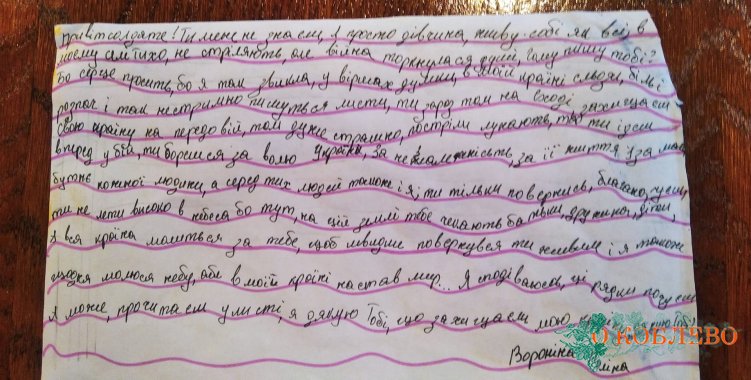 Привіт солдате! Ти мене не знаєш, я просто дівчина, живу собі як всі, в
моєму селі тихо, не стріляють, але війна торкнулася душі, чому пишу тобі?
Бо серце просить, бо я так звикла, у віршах думки, в моїй країні сльози, біль і
розпач і так нестримно пишуться листи, ти зараз там на сході захищаєш
свою країну на передовій, там дуже страшно, постріли лунають, та ти ідеш
вперед у бій, ти борешся за волю України, за незалежність, за її життя і за май-
бутнє кожної людини, а серед тих людей також і я, ти тільки повернись, благаю, чуєш
ти не лети високо в небеса бо тут, на цій землі тебе чекають батьки, дружина, діти,
я вся країна молиться за тебе, щоб швидше повернувся ти живим і я також
щодня молюся небу, аби в моїй країні настав мир... Я сподіваюсь, ці рядки почуєш
я може, прочитаєш у листі, я дякую Тобі, що захищаєш мою
Вороніна Аліна
О КОБЛЕВО